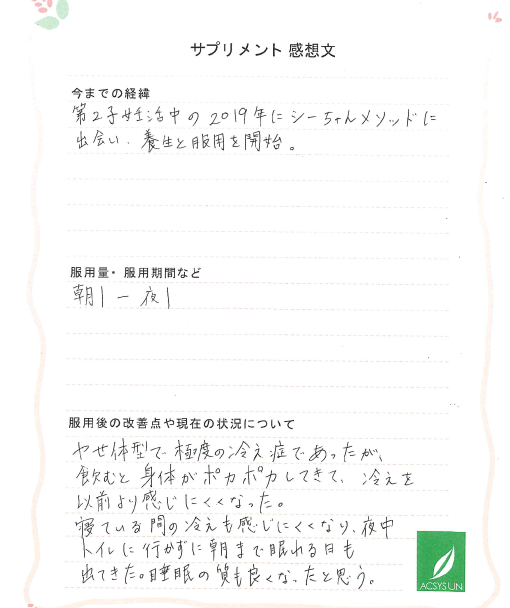 サプリメント 感想文
今までの経緯
第2子妊活中の2019年にシーちゃんメソッドに
出会い、養生と服用を開始。
服用量・服用期間など
朝1 ー 夜1
服用後の改善点や現在の状況について
ヤセ体型で極度の冷え症であったが、
飲むと身体がポカポカしてきて、冷えを
以前より感じにくくなった。
寝ている間の冷えも感じにくくなり、夜中
トイレに行かずに朝まで眠れる日も
出てきた。睡眠の質も良くなったと思う。
ACSYS UN